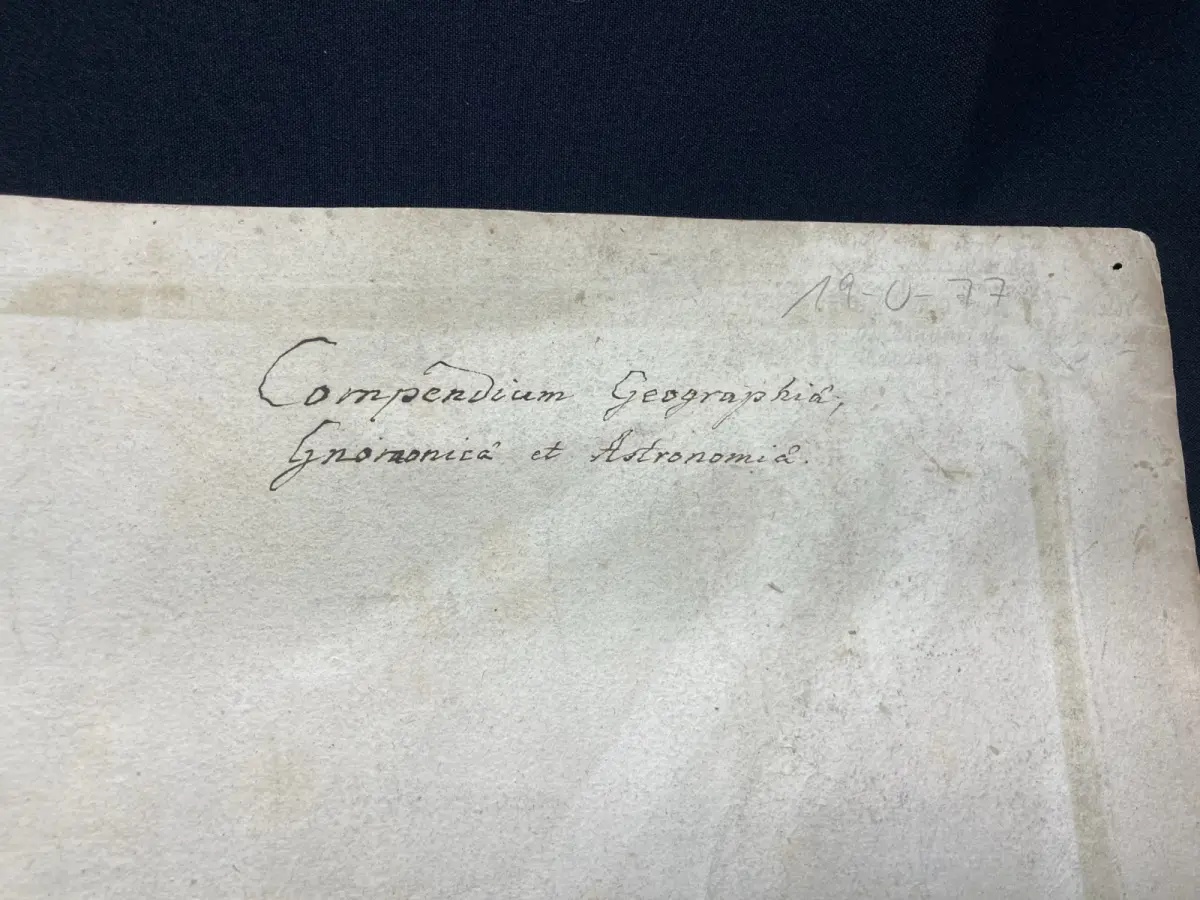 19-U-77
Compendium Geographiæ,
Gnomonicæ et Astronomiæ.